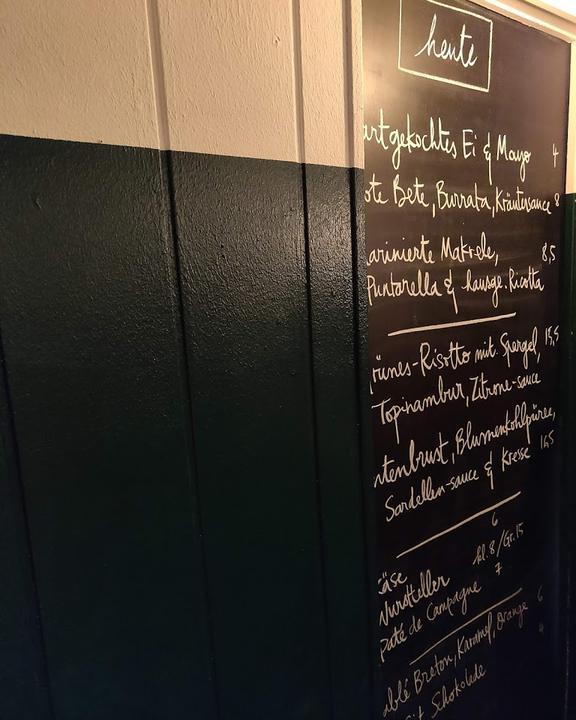 heute
artgekochtes Ei & Mayo 4
ote Bete, Burrata, Kräutersauce 8
arinierte Makrele, 8,5
Puntarella & hausge. Ricotta
rünes-Risotto mit. Spargel, 15,5
Topinambur, Zitrone-sauce
ntenbrust, Blumenkohlpüree,
Sardellen-sauce & Kresse 16,5
äse 6
Wurstteller kl. 8/Gr. 15
Paté de Campagne 7
ablé Breton, Karamel, Orange 6
it Schokolade 4